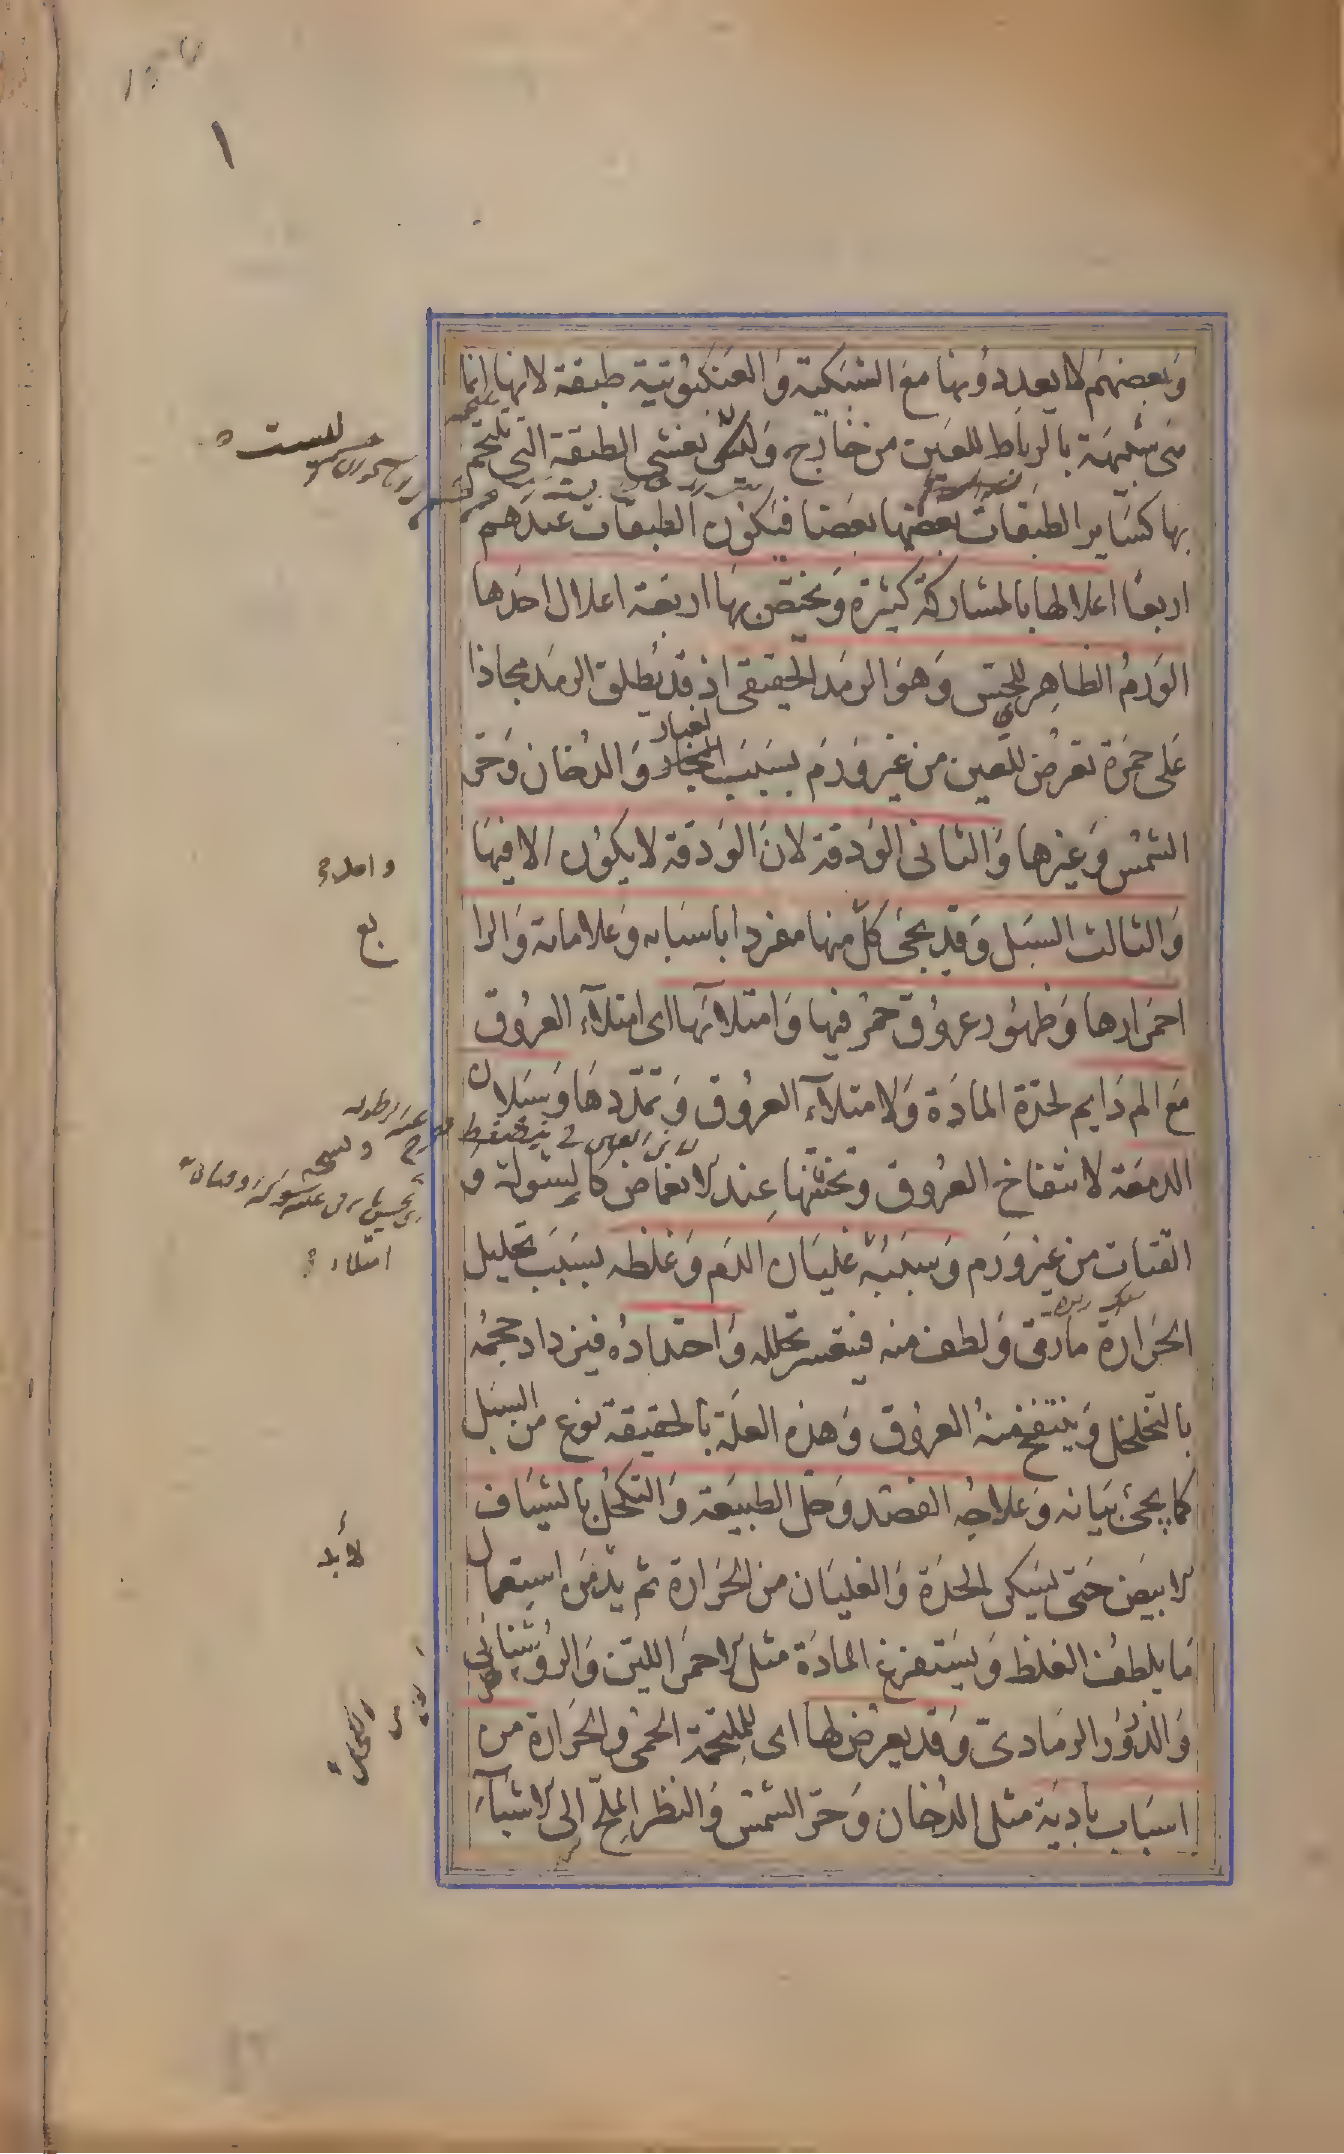 ١
وَبعضهُم لا يعددُونها معَ الشبكية وَالعنكبُوتية طبقة لانها انما
هى شبيهة بالرباط للعَين من خارج وَليسَ تغشى الطبقة التى تلتحم
بها كسَاير الطبقات بعضها بعضا فيكوُن الطبقات عندهم
اربعًا اعلالها بالمشاركة كثيرة وَيختص بهَا اربعة اعلال احدها
الوَرمُ الظاهِر للحِسّ وَهوَ الرمَد الحقيقى اذ قد يُطلق الرمَد مجازا
عَلى حمرَة تعرض للعين من غير وَرَم بسَبَب الغبار وَالدُخان وَحرّ
الشمسْ وَغيرها وَالثانى الوَدقة لان الوَدقة لا يكوُن الا فيهَا
وَالثالث السبَل وَقد يجئ كلّ منها مفردا باسبَابه وَعلاماته وَالرا
بع
احمرَارها وَظهوُر عروُق حمر فيها وَامتلائها اى امتلآء العرُوق
مَع الم دَايم لحدّة المادّة وَلامتلآء العرُوق وَتمدّدهَا وَسَيلان
الدمعَة لانتفاخ العرُوق وتخشنها عِند الانغماض كالشوكة و
القتات من غير وَرم وَسَببُهُ غليَان الدَم وَغلظه بسَبَب تحليل
الحرَارة مارَق وَلطف منه فيعسر تحلله وَاحتدادُه فيزداد حجمُه
بالتخلخل وَينتفخ منهُ العرُوق وَهذه العلّة بالحقيقة نوع من السبل
كما يجئ بيَانه وَعلاجُه الفصْد وَحلّ الطبيعَة وَالتكحلُ بالشيَاف
الابيَض حَتى يسَكن الحدّة وَالغليَان من الحرَارة ثم يدْمَن استعمال
مَا يلطف الغلظ وَيسَتفرغ المادّة مثل الاحمرَ الليّن وَالرُوشنائى
وَالذرُوُر الرمَادىّ وَقد يعرض لها اى للملتحمة الحمى والحرَارة من
اسبَاب بادِيَة مثل الدُخان وَحرّ الشمسْ وَالنظر الملحّ الى الاشيآءَ
امتلاء
لابد